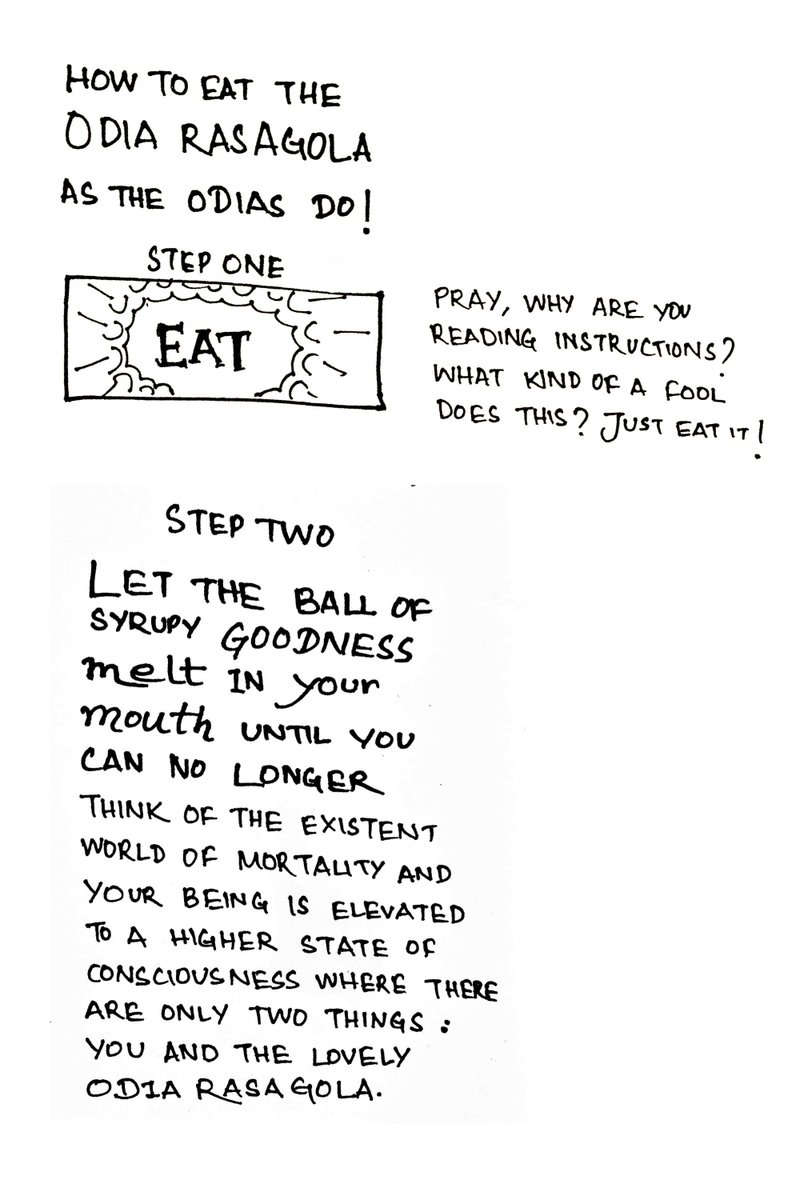 HOW TO EAT THE
ODIA RASAGOLA
AS THE ODIAS DO!
STEP ONE
EAT
PRAY, WHY ARE YOU
READING INSTRUCTIONS?
WHAT KIND OF A FOOL
DOES THIS? JUST EAT IT!
STEP TWO
LET THE BALL OF
SYRUPY GOODNESS
melt IN your
mouth UNTIL YOU
CAN NO LONGER
THINK OF THE EXISTENT
WORLD OF MORTALITY AND
YOUR BEING IS ELEVATED
TO A HIGHER STATE OF
CONSCIOUSNESS WHERE THERE
ARE ONLY TWO THINGS:
YOU AND THE LOVELY
ODIA RASAGOLA.